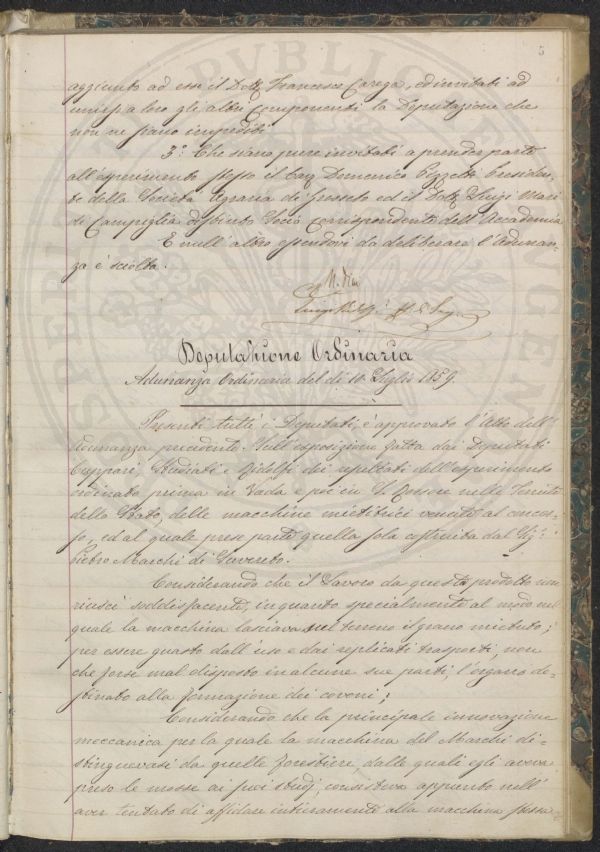 5
aggiunto ad essi il Dott. Francesco Carega, ed invitati ad
unirsi a loro gli altri componenti la Deputazione che
non ne siano impediti.
3.° Che siano pure invitati a prender parte
all'esperimento stesso il Cav. Domenico Pizzetti Presiden-
te della Società Agraria di Grosseto ed il Dott. Luigi Mari
di Campiglia distinto Socio corrispondente dell'Accademia
E null'altro essendovi da deliberare l'Adunan-
za è sciolta.
Luigi Ridolfi
Deputazione Ordinaria
Adunanza Ordinaria del dì Luglio 1859.
Presenti tutti i Deputati, è approvato l'Atto dell'
Adunanza precedente. Sull'esposizione fatta dai Deputati
Cuppari, Studiati e Ridolfi dei resultati dell'esperimento
ordinato prima in Vada e poi in S. Rossore nelle Tenute
dello Stato, delle macchine mietitrici venute al concor-
so, ed al quale prese parte quella sola costruita dal Sig.
Pietro Marchi di Sovereto.
Considerando che il lavoro da questa prodotto non
riuscì soddisfacente, in quanto specialmente al modo nel
quale la macchina lasciava sul terreno il grano mietuto;
per essere guasto dall'uso e dai replicati trasporti, non
che forse mal disposto in alcune sue parti l'organo de-
stinato alla formazione dei covoni;
Considerando che la principale innovazione
meccanica per la quale la macchina del Marchi di-
stinguevasi da quelle forestiere dalle quali egli aveva
preso le mosse ai suoi studj, consisteva appunto nell'
aver tentato di affidare intieramente alla macchina stessa